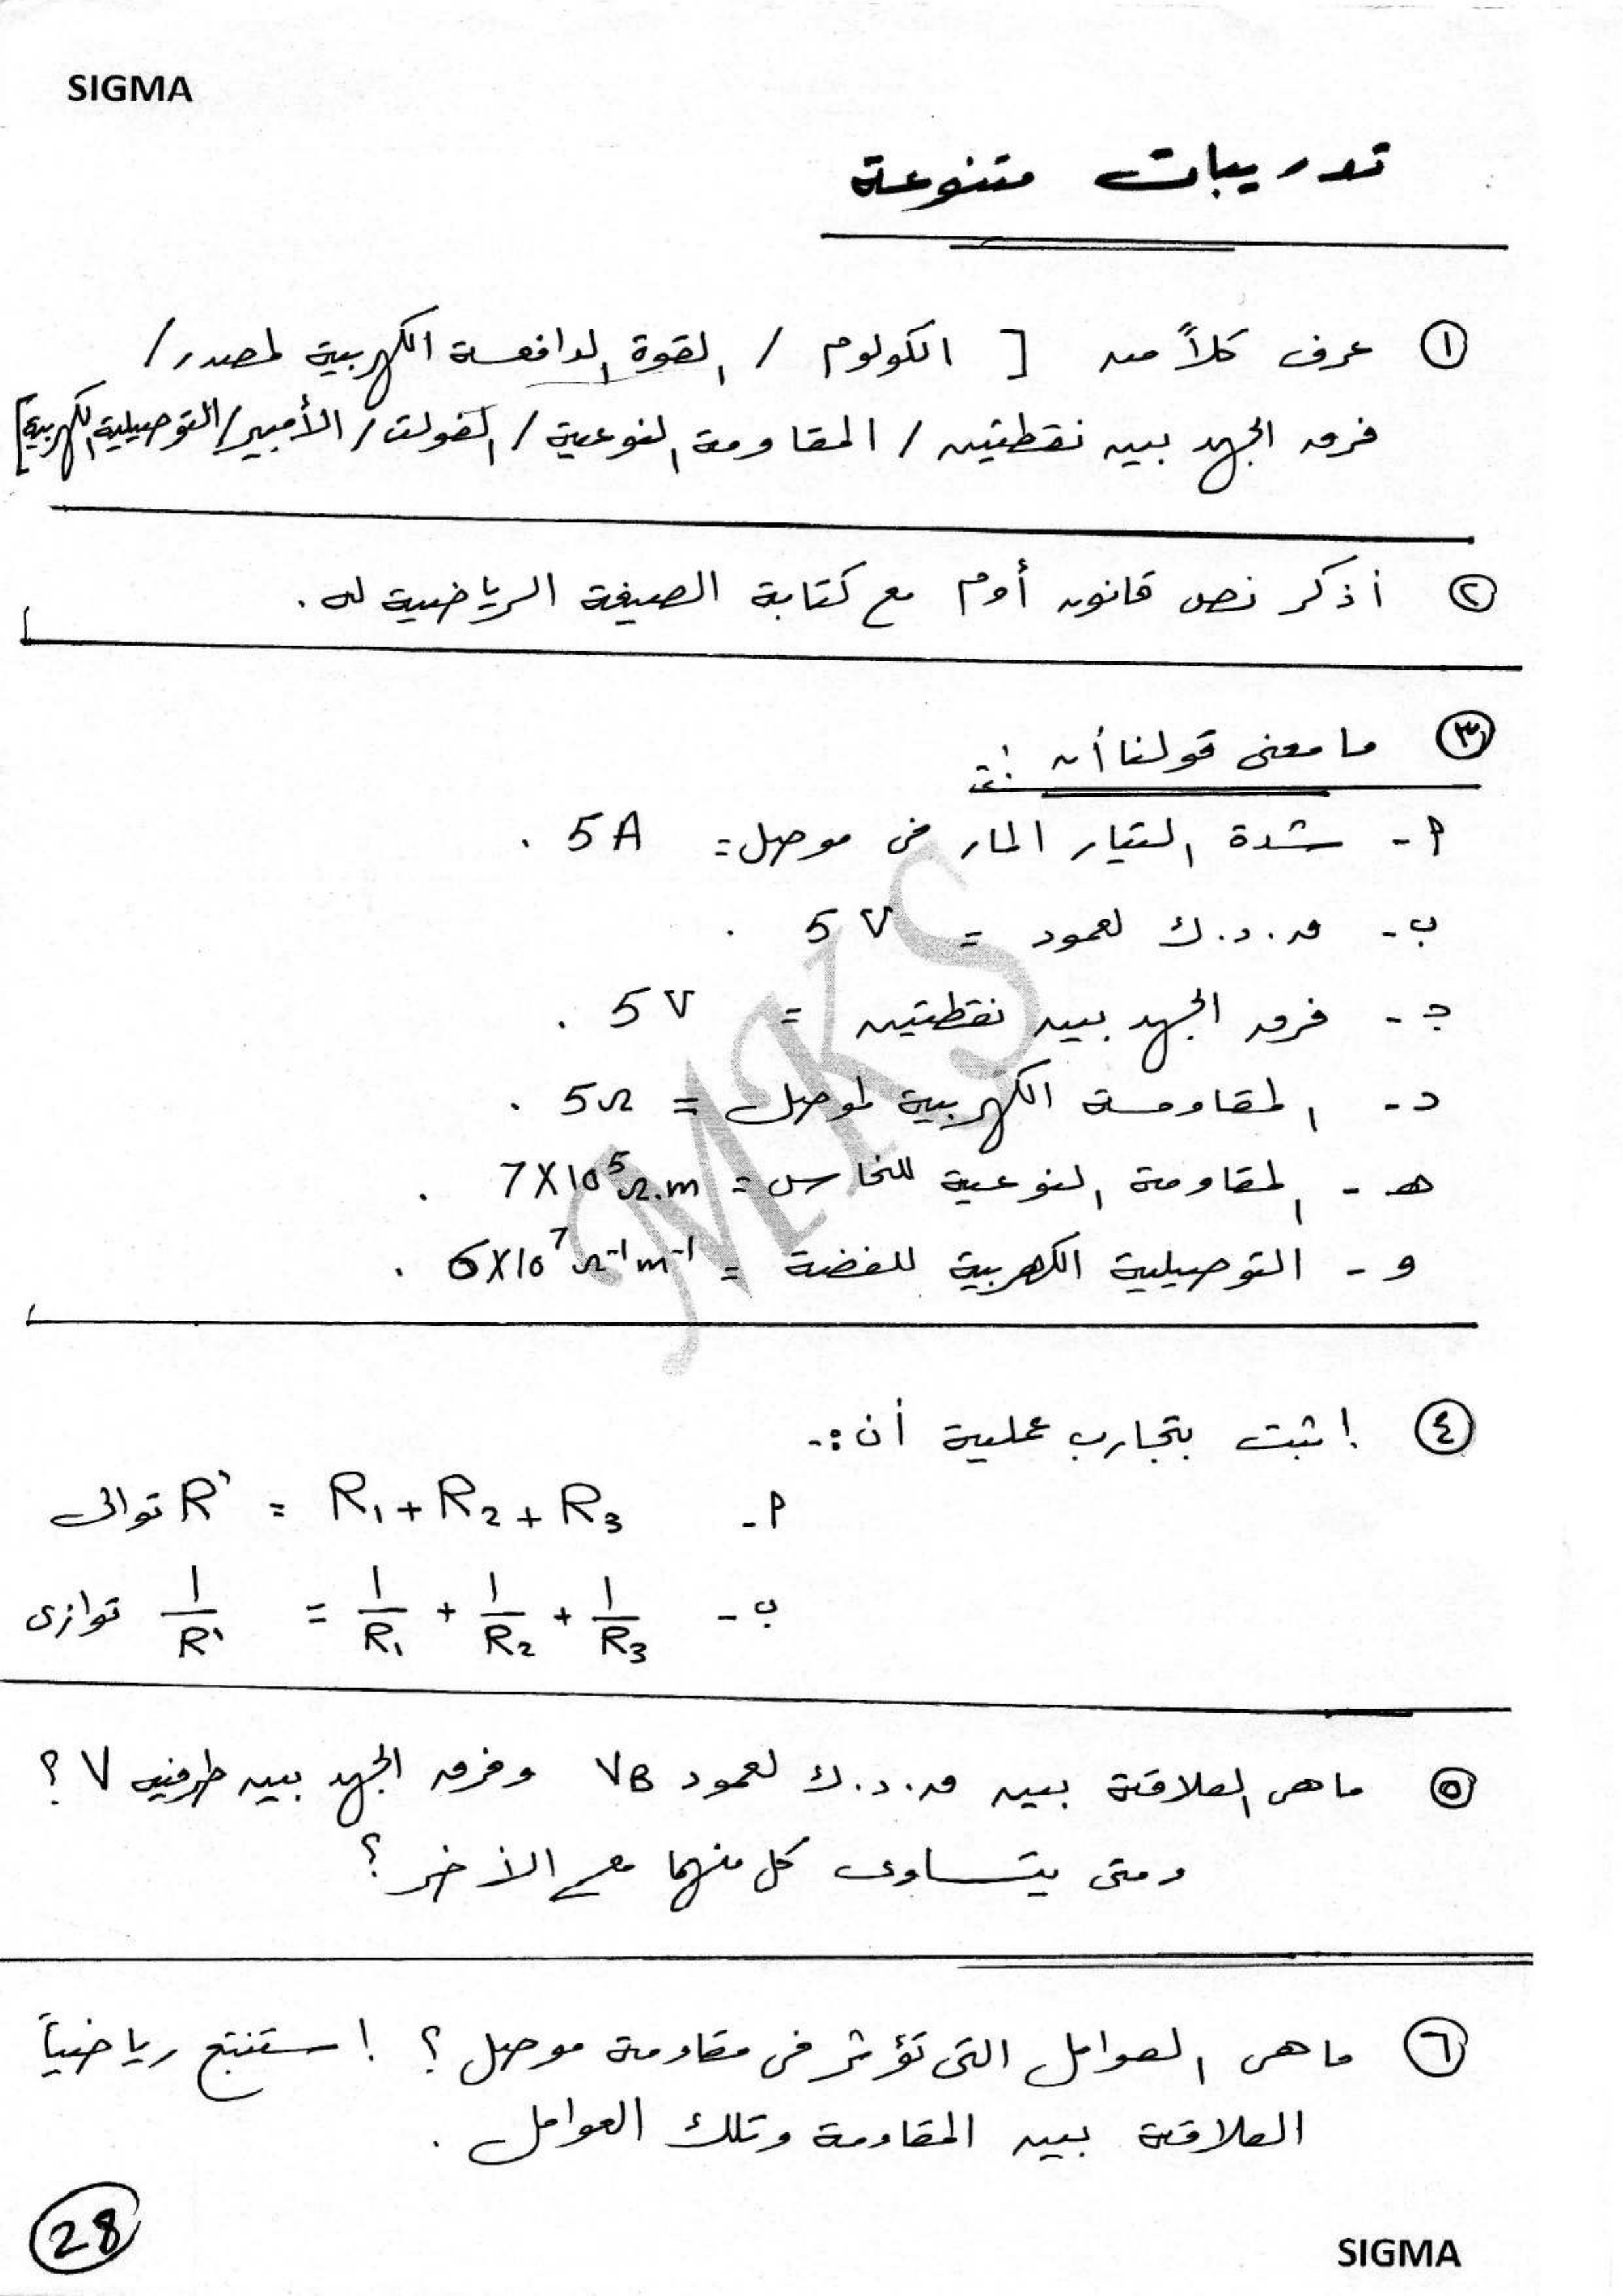 SIGMA
تدريبات متنوعة
① عرف كلاً من [ الكولوم / القوة الدافعة الكهربية لمصدر /
فرق الجهد بين نقطتين / المقاومة النوعية / الفولت / الأمبير / التوصيلية الكهربية ]
② أذكر نص قانون أوم مع كتابة الصيغة الرياضية له .
③ ما معنى قولنا أن :-
أ - شدة التيار المار فى موصل = 5 A .
ب - ق . د . ك لعمود = 5 V .
جـ - فرق الجهد بين نقطتين = 5 V .
د - المقاومة الكهربية لموصل = 5 Ω .
هـ - المقاومة النوعية للنحاس = 7 X 10⁵ Ω.m .
و - التوصيلية الكهربية للفضة = 6 X 10⁷ Ω⁻¹ m⁻¹ .
④ اثبت بتجارب عملية أن :-
أ - R₁ + R₂ + R₃ = R' توالى
ب - 1/R' = 1/R₁ + 1/R₂ + 1/R₃ توازى
⑤ ما هى العلاقة بين ق . د . ك لعمود V_B وفرق الجهد بين طرفيه V ؟
ومتى يتساوى كل منهما مع الأخر ؟
⑥ ما هى العوامل التى تؤثر فى مقاومة موصل ؟ استنتج رياضياً
العلاقة بين المقاومة وتلك العوامل .
28
SIGMA
MKS